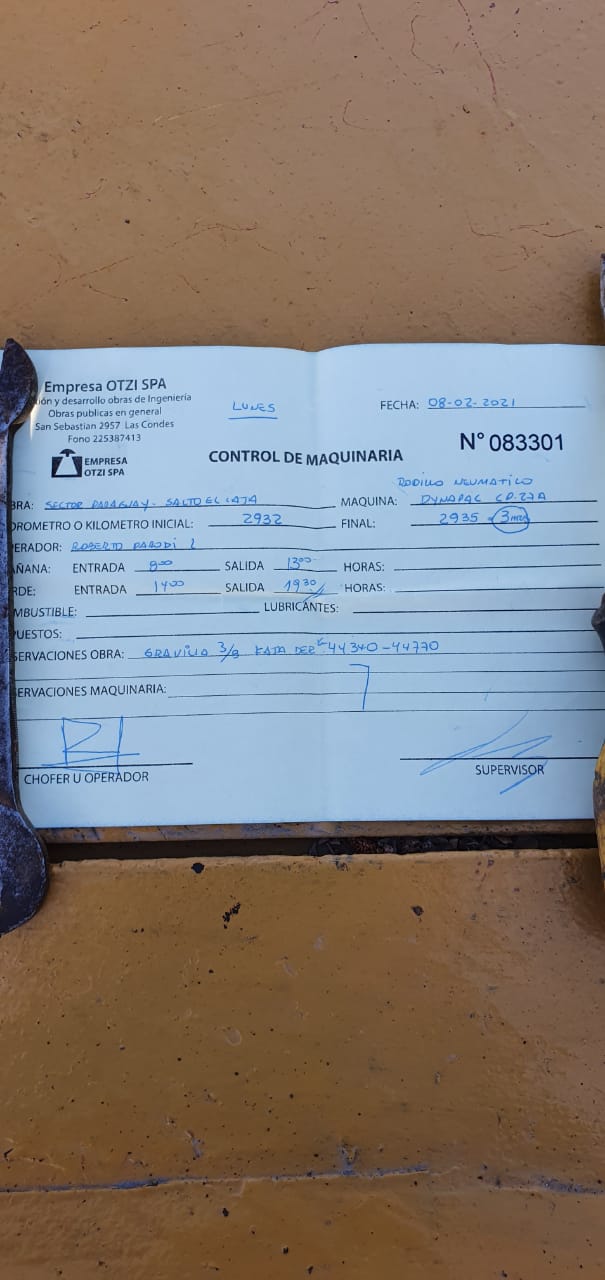 Empresa OTZI SPA
ión y desarrollo obras de Ingeniería
Obras publicas en general
San Sebastian 2957 Las Condes
Fono 225387413
EMPRESA
OTZI SPA
LUNES
FECHA: 08-02-2021
N° 083301
CONTROL DE MAQUINARIA
RODILLO NEUMATICO
BRA: SECTOR PARAGUAY - SALTO EL LAJA MAQUINA: DYNAPAC CP.27A
OROMETRO O KILOMETRO INICIAL: 2932 FINAL: 2935 3
ERADOR: ROBERTO PARODI L
AÑANA: ENTRADA 8:00 SALIDA 13:00 HORAS:
RDE: ENTRADA 14:00 SALIDA 19:30 HORAS:
MBUSTIBLE: LUBRICANTES:
PUESTOS:
SERVACIONES OBRA: GRAVILLA 3/8 44340-44770
SERVACIONES MAQUINARIA:
CHOFER U OPERADOR
SUPERVISOR